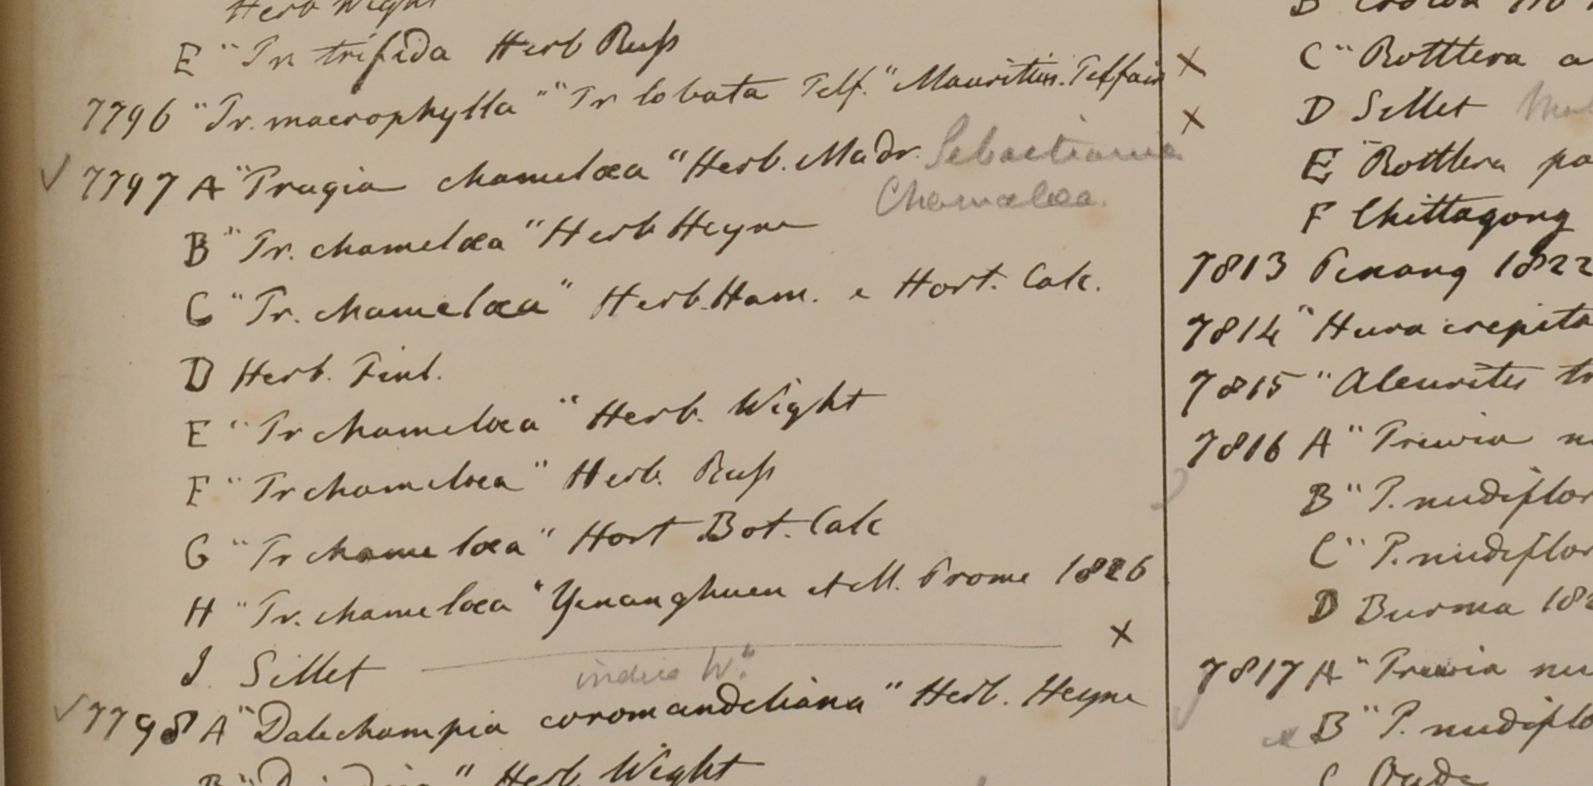 Herb Wight
E "Tr trifida Herb Ruſs
7796 "Tr. macrophylla" "Tr lobata Telf." Mauritius. Telfair X
7797 A "Tragia chamelœa" Herb. Madr. Sebastiania X
Chamælea.
B "Tr. chamelœa" Herb Heyne
C "Tr. chamelœa" Herb. Ham. e Hort. Calc.
D Herb. Finl.
E "Tr chamelœa" Herb. Wight
F "Tr chamelœa" Herb. Ruſs
G "Tr chamelœa" Hort Bot. Calc
H "Tr. chamelœa" Yenanghuen et M. Prome 1826
I. Sillet X
indica W.
7798 A "Dalechampia coromandeliana" Herb. Heyne
Herb. Wight
C "Rottlera a
D Sillet
E "Rottlera pa
F Chittagong
7813 Penang 1822
7814 "Hura crepita
7815 "Aleurites tr
7816 A "Trewia nu
B "T. nudiflor
C "T. nudiflor
D Burma 182
7817 A "Trewia nu
B "T. nudiflo
C Oude